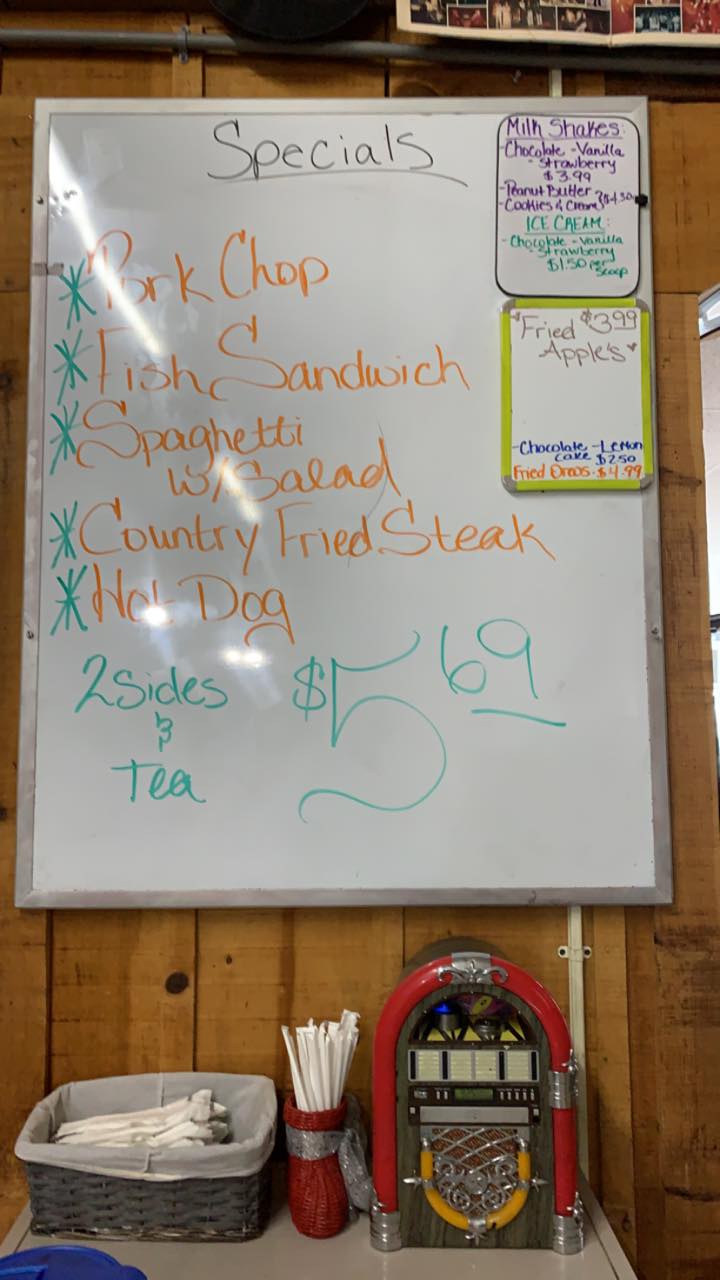 Specials
*Pork Chop
*Fish Sandwich
*Spaghetti
w/Salad
*Country Fried Steak
*Hot Dog
2 Sides
&
Tea
$5 69
Milk Shakes:
-Chocolate -Vanilla
-Strawberry
$3.99
-Peanut Butter
-Cookies & Cream } $4.50
ICE CREAM:
-Chocolate -Vanilla
-Strawberry
$1.50 per
scoop
Fried $3.99
Apple's
-Chocolate -Lemon
Cake $2.50
Fried Oreos-$4.99